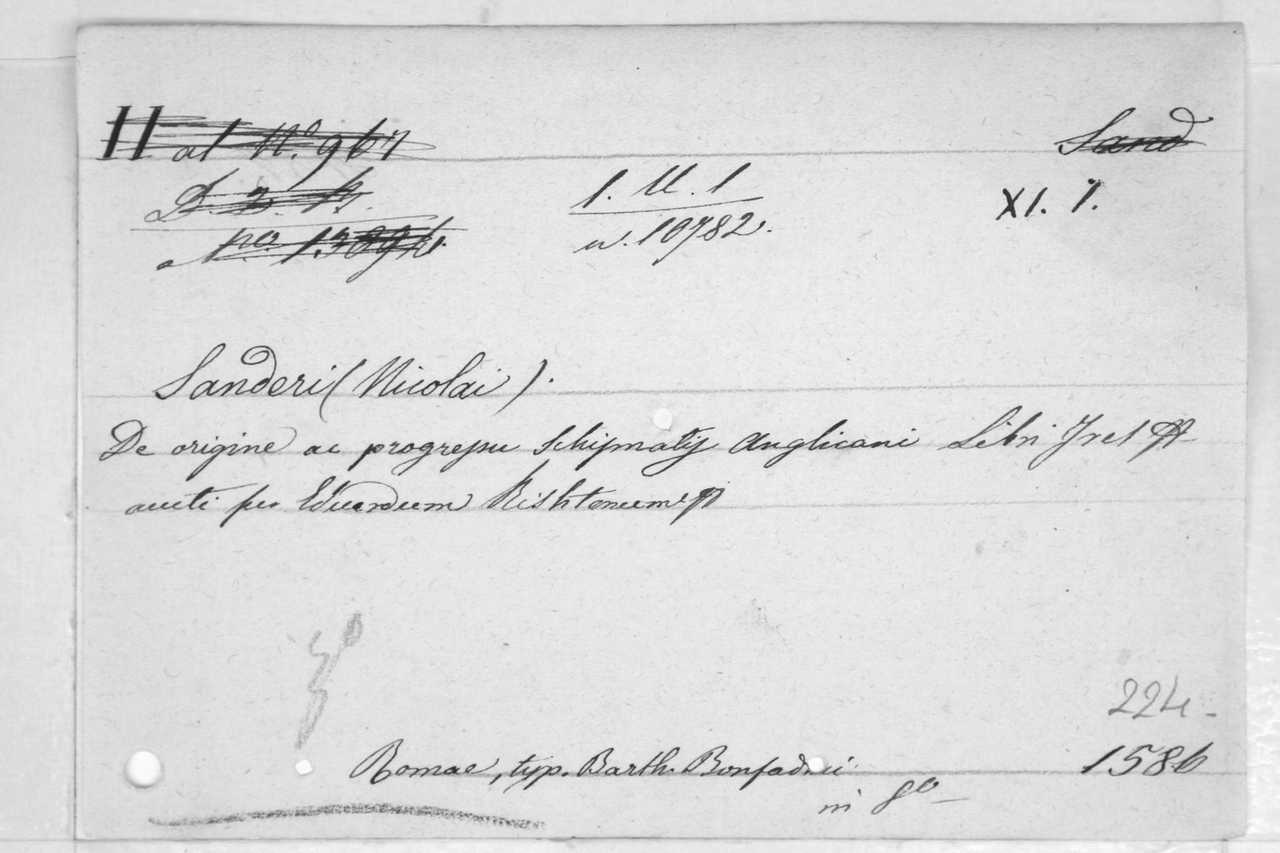 H al No. 967 Sand
D. 2. N.
No. 13096.
1. U. 1 XI. 7.
n. 10782.
Sanderi (Nicolai).
De origine ac progressu Schismatis Anglicani Libri Tres
aucti per Eduardum Rishtonum
224-
Romae, typ. Barth. Bonfadini 1586
in 8o